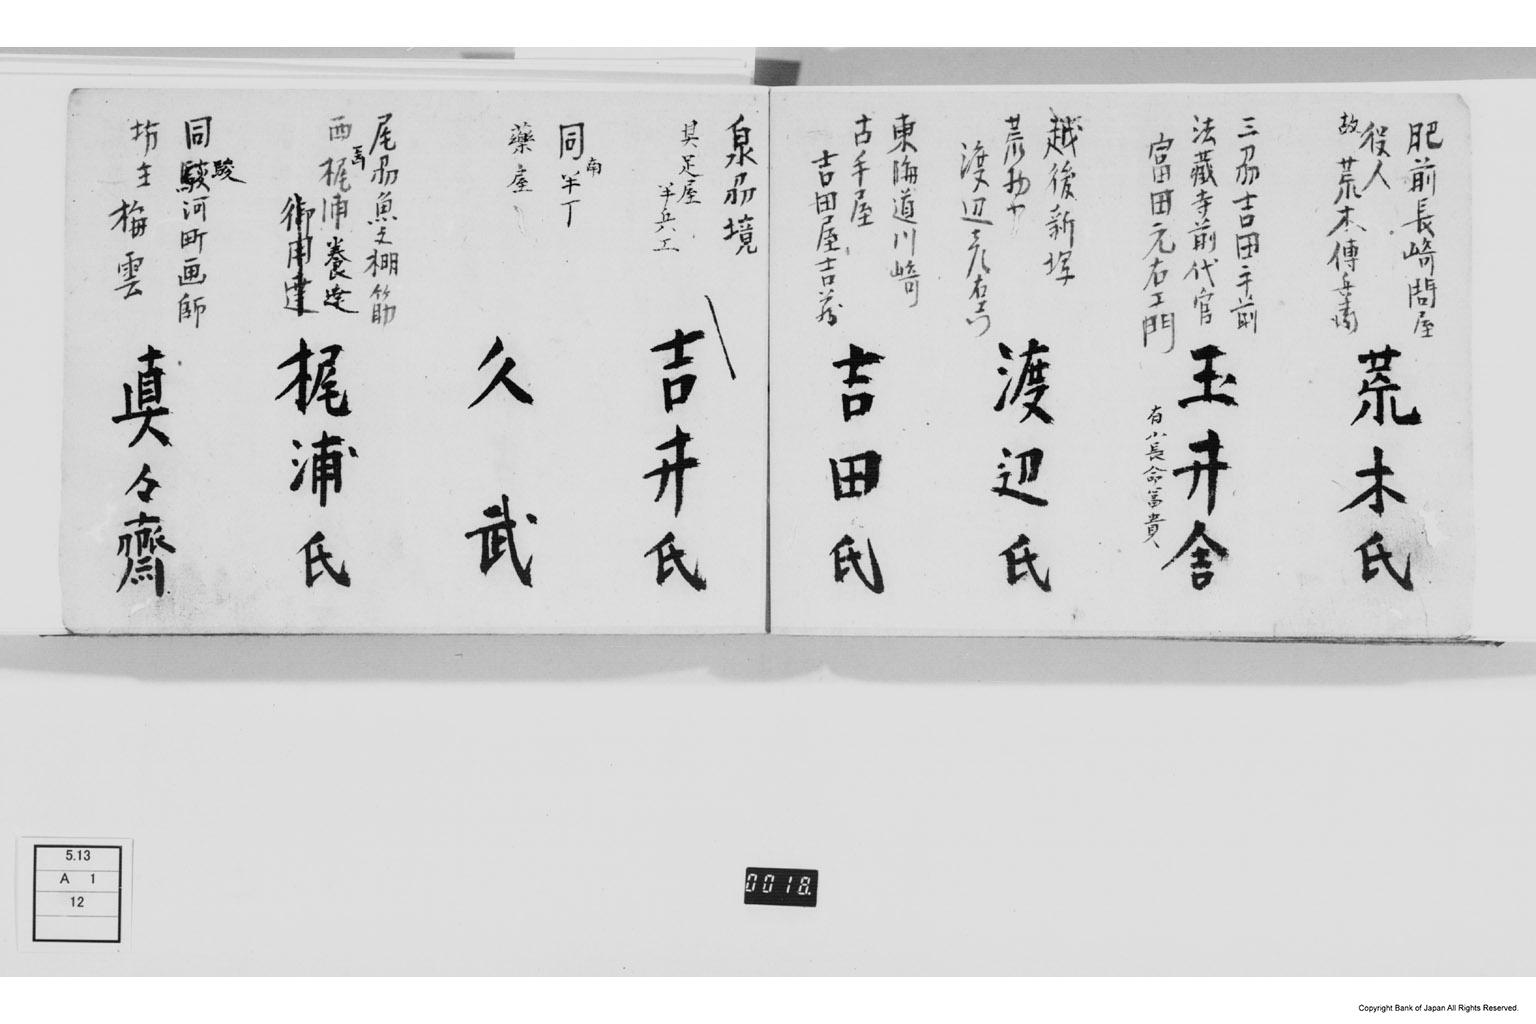 肥前長崎問屋
役人
故 荒木傳兵衛
荒木氏
三刕吉田手前
法藏寺前代官
富田元右エ門
玉井舎
有小長命富貴
越後新潟
荒物や
渡辺彦右衛門
渡辺氏
東海道川崎
古手屋
吉田屋吉蔵
吉田氏
泉刕境
具足屋
半兵エ
吉井氏
同南半丁
薬屋
久武
尾刕魚之棚筋
西 梶浦養達
御用達
梶浦氏
同駿河町画師
駿
坊主梅雲
真々齋
5.13
A 1
12
0018.
Copyright Bank of Japan All Rights Reserved.